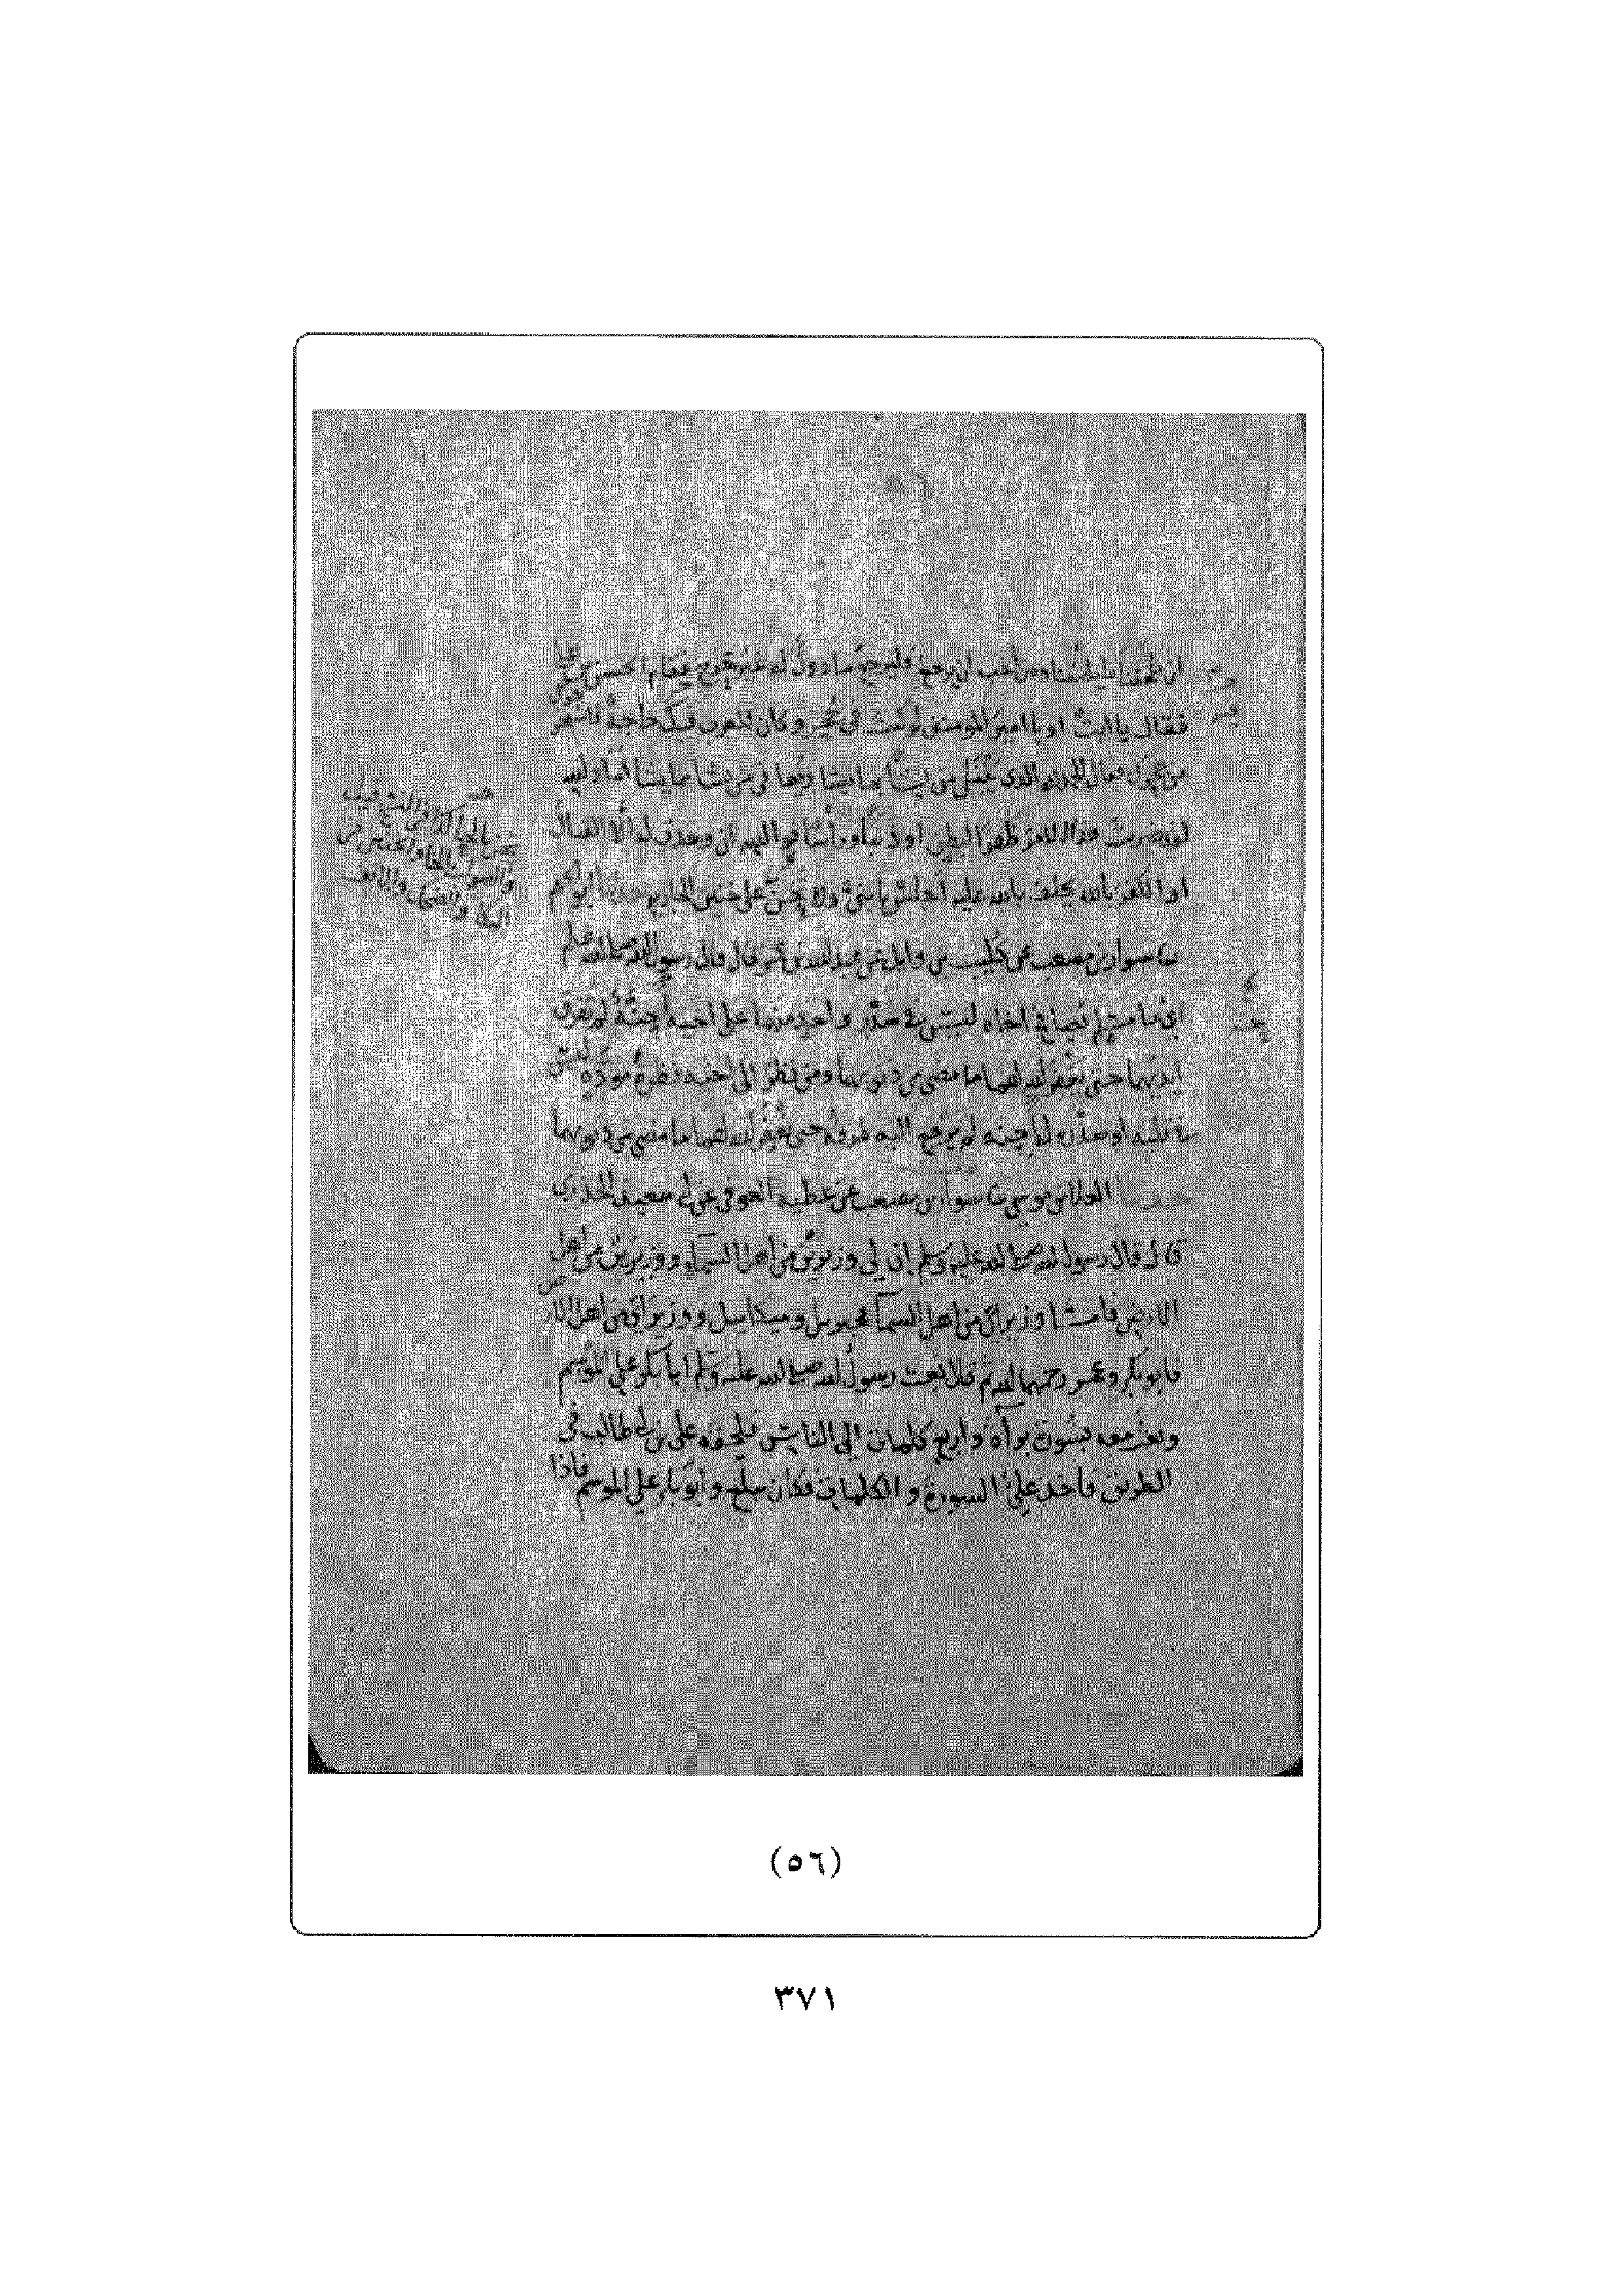 ان يلحقنا فليلحقنا ومن احب ان يرجع فليرجع مأذول له غير حرج فقام الحسن بن علي
فقال يا ابت او يا امير المومنين لو كنت في جحر وكان للعرب فيك حاجة لاستخرجوك
من جحرك فقال الحمد لله الذي يبتلي من يشا بما يشا ويعافي من يشا بما يشا اما والله
لقد ضربت هذا الامر ظهرا لبطن او ذنبا ورأسا فوالله ان وجدت له الا القتال
او الكفر بالله يحلف بالله عليه اجلس يا بني ولا تحن علي حنين الجارية حدثنا ابو الجهم
سا سوار بن مصعب عن كليب بن وايل عن عبد الله بن عمر قال قال رسول الله صلى الله عليه وسلم
ايما مسلم يصافح اخاه ليس في صدر واحد منهما على اخيه إحنة لم تفرق
ايديهما حتى يغفر الله لهما ما مضى من ذنوبهما ومن نظر الى اخيه نظرة مودة ليس
في قلبه او صدره له إحنة لم يرجع اليه طرفه حتى يغفر الله لهما ما مضى من ذنوبهما
حدثنا العلا بن موسى سا سوار بن مصعب عن عطية العوفي عن ابي سعيد الخدري
قال قال رسول الله صلى الله عليه وسلم إن لي وزيرين من اهل السماء ووزيرين من اهل
الارض فاما وزيراي من اهل السما فجبريل وميكاييل ووزيراي من اهل الارض
فابو بكر وعمر رحمهما الله ثم قال بعث رسول الله صلى الله عليه وسلم ابا بكر على الموسم
وبعث معه بسورة برآة واربع كلمات الى الناس فلحقه علي بن ابي طالب في
الطريق فأخذ علي السورة والكلمات فكان يبلغ وابو بكر على الموسم فاذا
(٥٦)
٣٧١